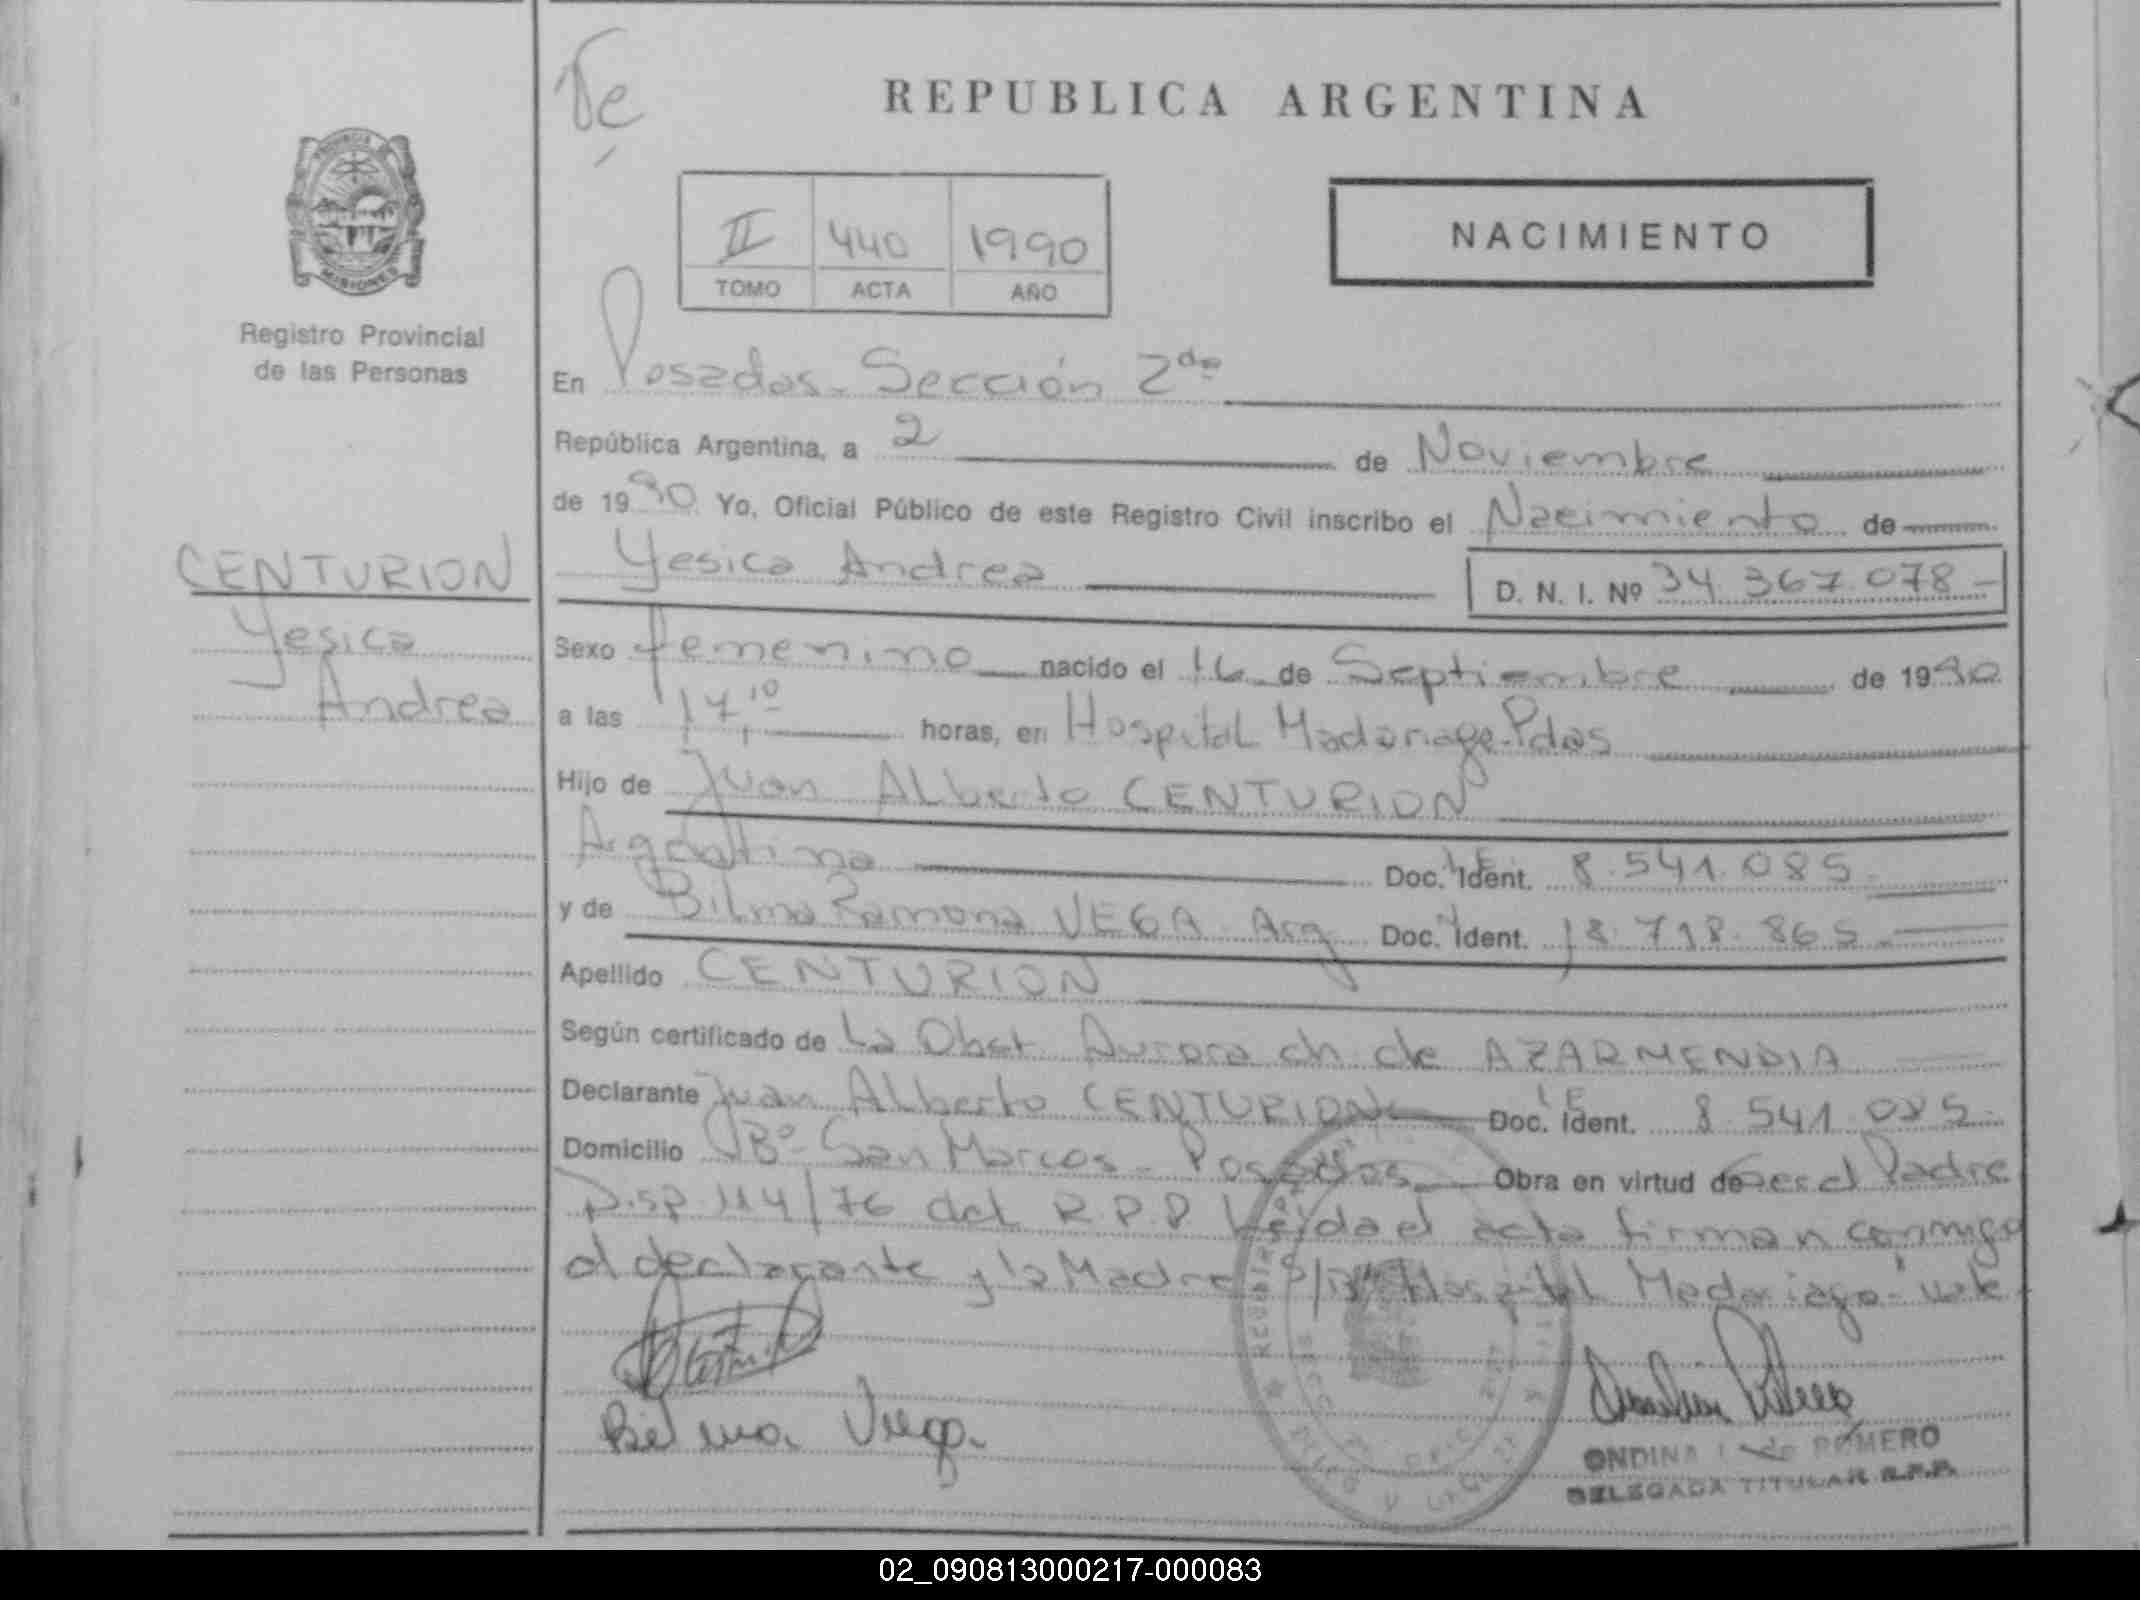 Te
REPUBLICA ARGENTINA
PROVINCIA
MISIONES
Registro Provincial
de las Personas
II 440 1990
TOMO ACTA AÑO
NACIMIENTO
En Posadas - Sección 2da
República Argentina, a 2 de Noviembre
de 1990 Yo, Oficial Público de este Registro Civil inscribo el Nacimiento de
CENTURION
Yesica
Andrea
Yesica Andrea D. N. I. Nº 34.367.078-
Sexo femenino nacido el 16 de Septiembre de 1990
a las 17,10 horas, en Hospital Madariaga-Pdas
Hijo de Juan ALberto CENTURION
Argentino Doc. Ident. 8.541.085
y de Bilma Ramona VEGA Arg Doc. Ident. 18.718.865
Apellido CENTURION
Según certificado de La Obst. Aurora ch de AZARMENDIA
Declarante Juan ALberto CENTURION Doc. Ident. 8 541.085
Domicilio Bº San Marcos - Posadas Obra en virtud de ser el Padre
Disp 114/76 del R.P.P Leida el acta firman conmigo
el declarante y la Madre Hospital Madariaga
Bilma Vega.
ONDINA de ROMERO
DELEGADA TITULAR R.P.P.
02_090813000217-000083